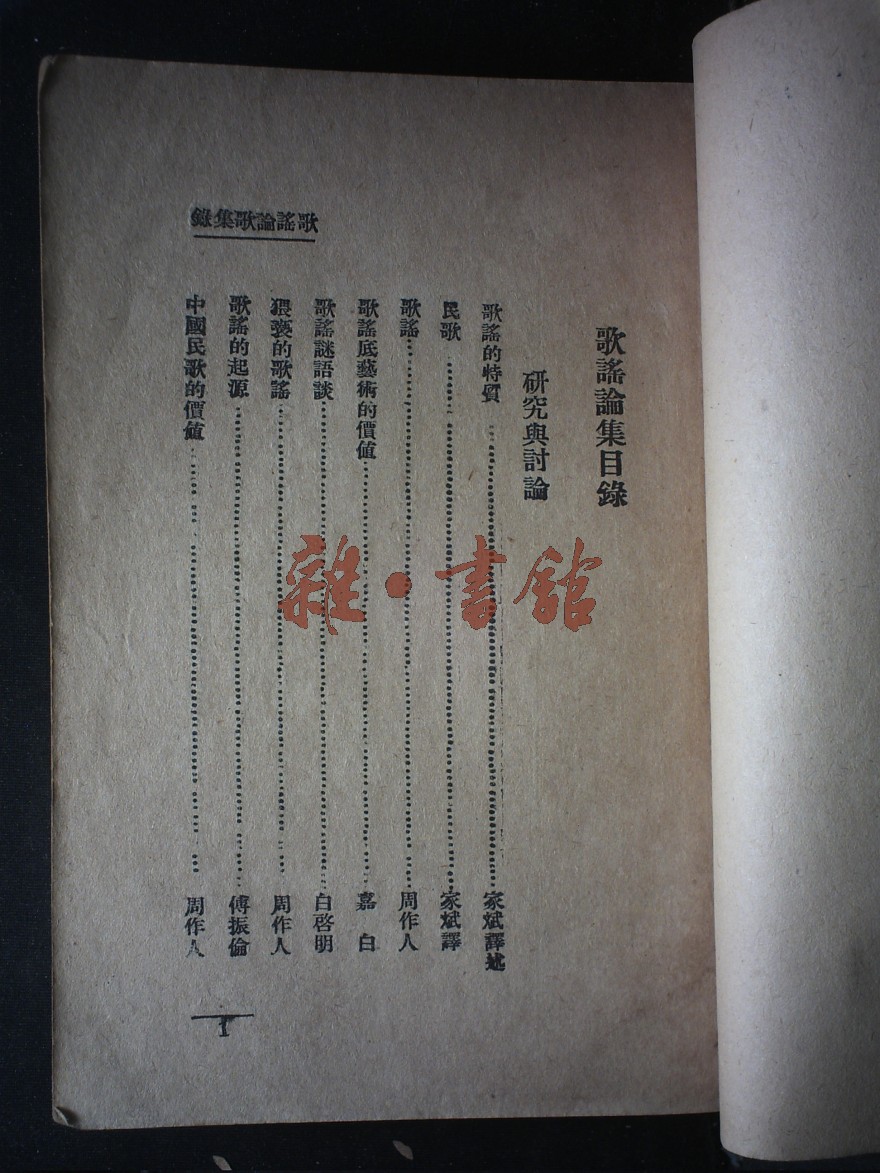 歌謠論歌集錄
歌謠論集目錄
研究與討論
歌謠的特質……家斌譯述
民歌……家斌譯
歌謠……周作人
歌謠底藝術的價值……嘉白
歌謠謎語談……白啓明
猥褻的歌謠……周作人
歌謠的起源……傅振倫
中國民歌的價値……周作人
1
雜·書館